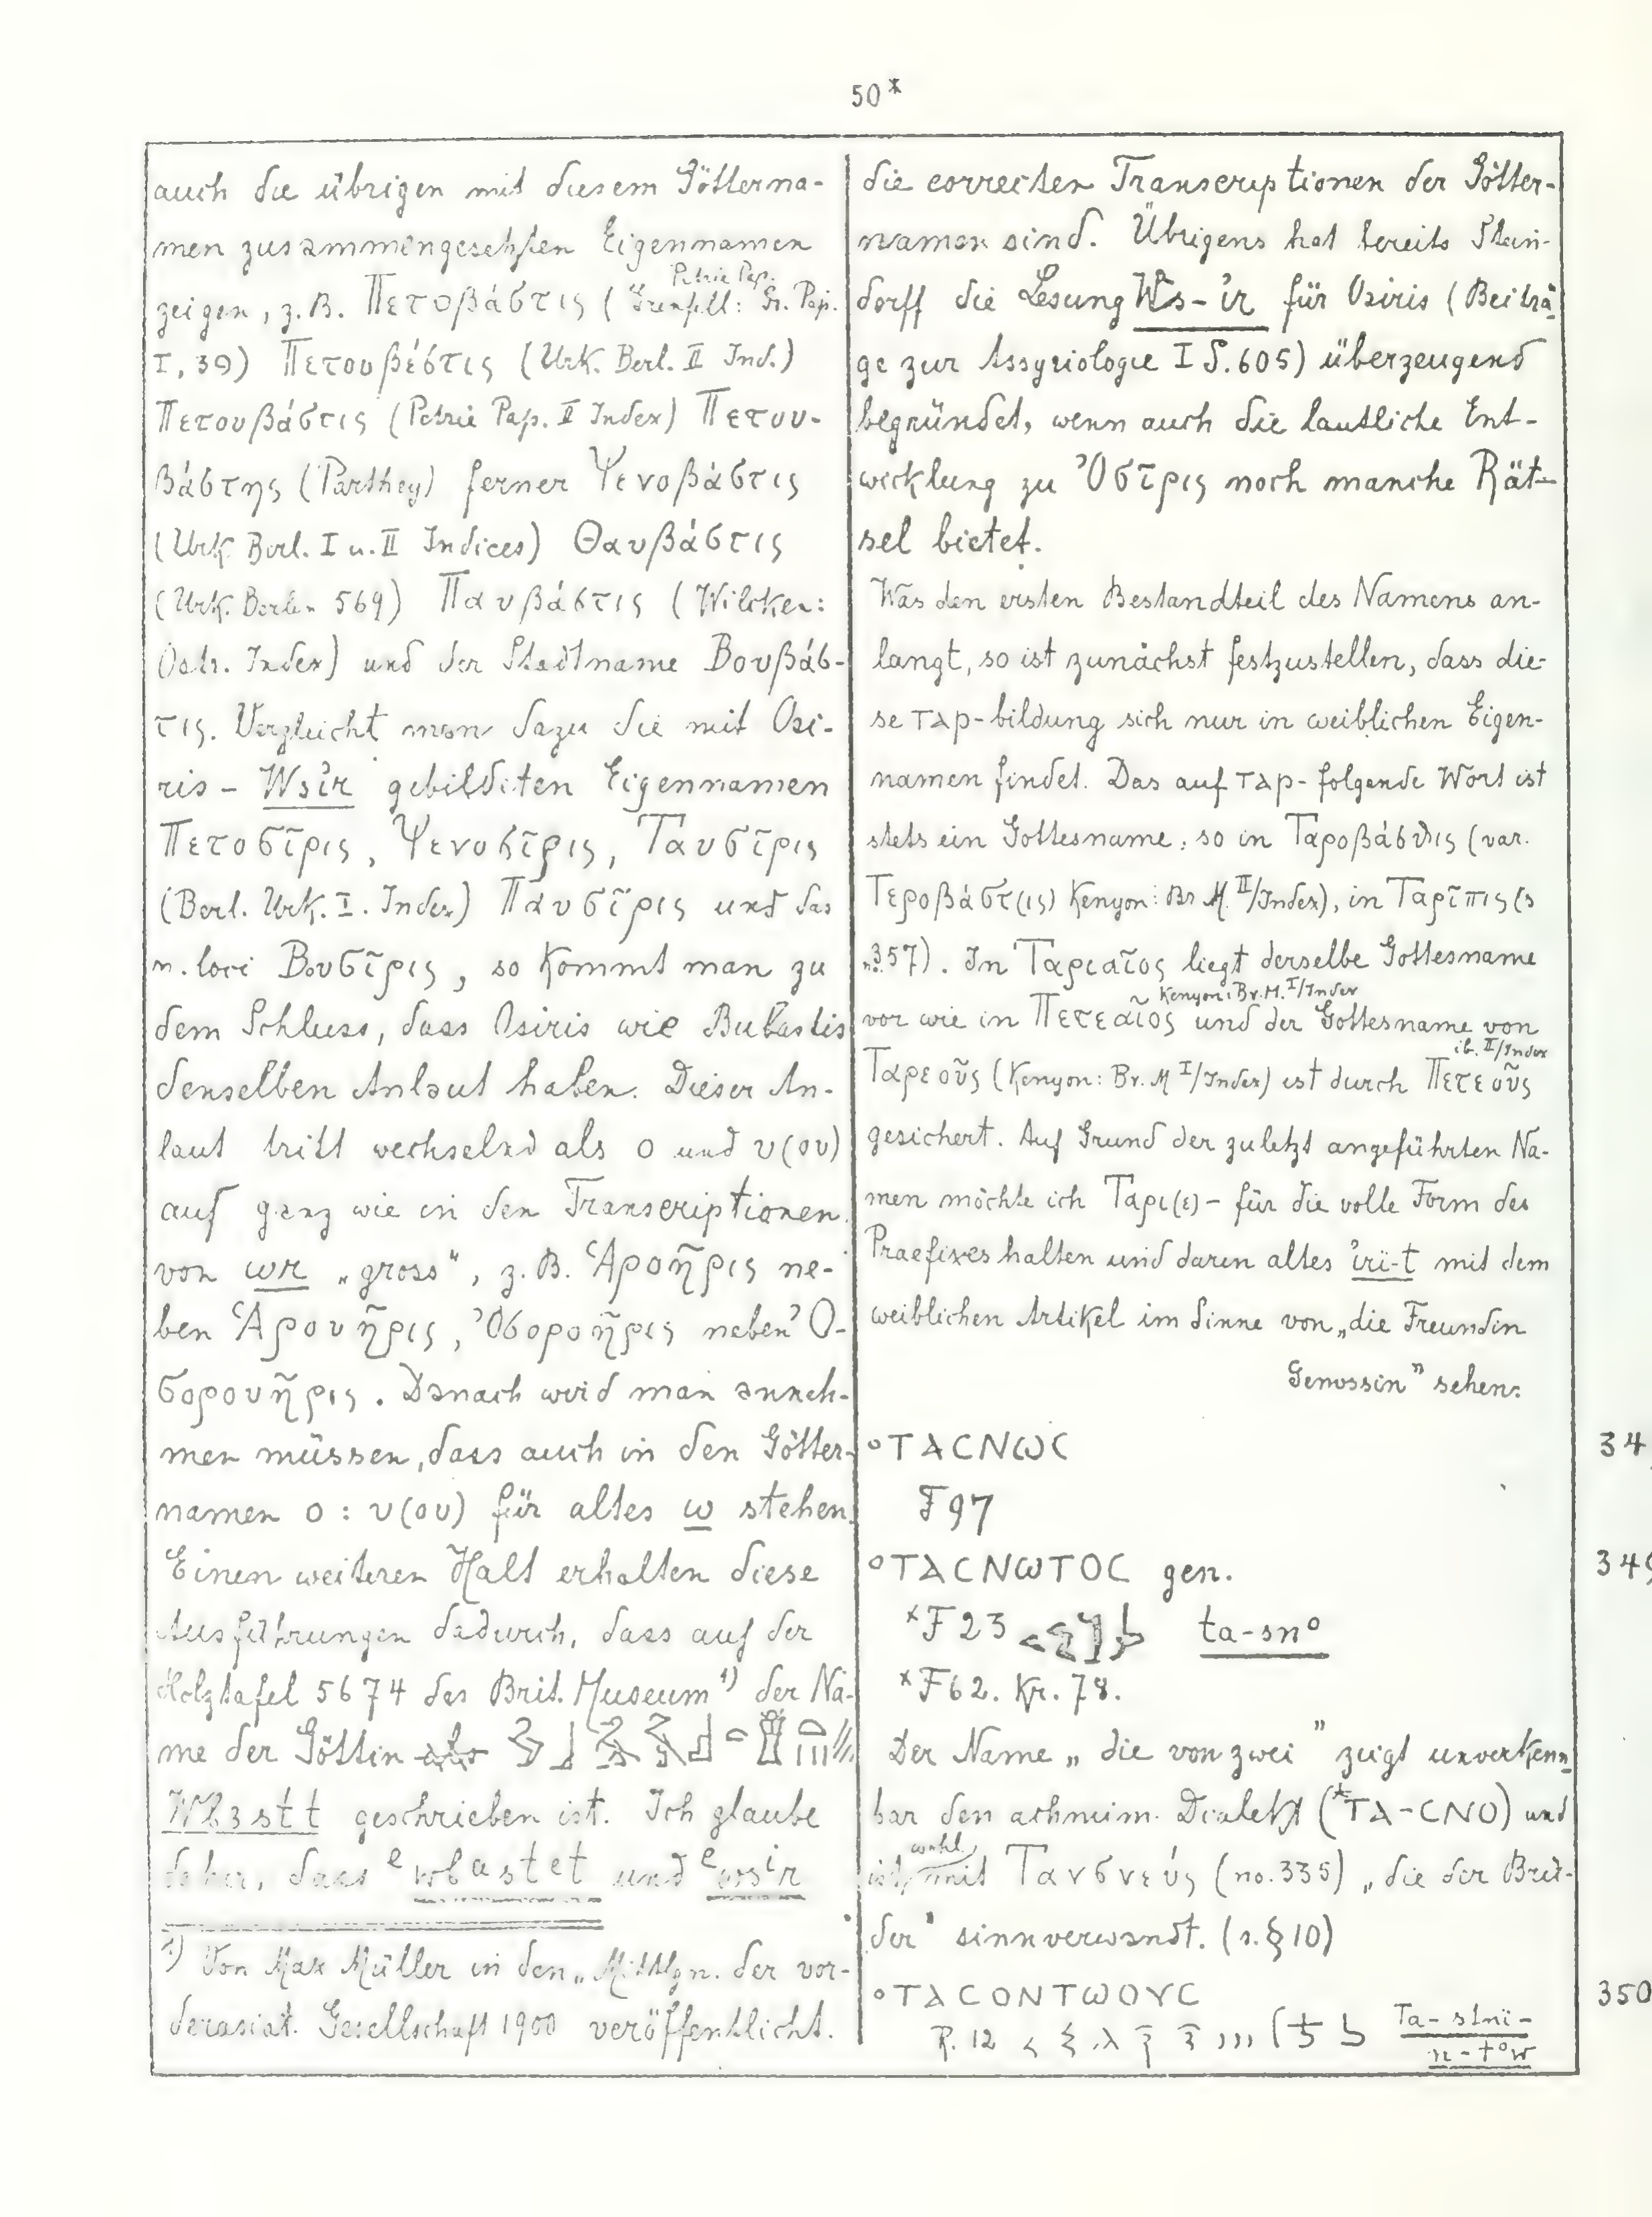 50*
auch die übrigen mit diesem Götterna-
men zusammengesetzten Eigennamen
Petrie Pap.
zeigen, z. B. Πετοβάστις (Grenfell: Gr. Pap.
I, 39) Πετουβέστις (Urk. Berl. II Ind.)
Πετουβάστις (Petrie Pap. II Index) Πετυυ-
βάστης (Parthey) ferner Ψενοβάστις
(Urk. Berl. I u. II Indices) Θαυβάστις
(Urk. Berlin 569) Παυβάστις (Wilcken:
Ostr. Index) und der Stadtname Βουβάσ-
τις. Vergleicht man dazu die mit Osi-
ris - Wsir gebildeten Eigennamen
Πετοσῖρις, Ψενοσῖρις, Ταυσῖρις
(Berl. Urk. I. Index) Παυσῖρις und das
n. loci Βουσῖρις, so kommt man zu
dem Schluss, dass Osiris wie Bubastis
denselben Anlaut haben. Dieser An-
laut tritt wechselnd als ο und υ(ου)
auf ganz wie in den Transcriptionen
von wr „gross“, z. B. Ἁροῆρις ne-
ben Ἁρουῆρις, Ὀσοροῆρις neben Ὀ-
σορουῆρις. Danach wird man anneh-
men müssen, dass auch in den Götter-
namen ο : υ(ου) für altes w stehen.
Einen weiteren Halt erhalten diese
Ausführungen dadurch, dass auf der
Holztafel 5674 des Brit. Museum¹) der Na-
me der Göttin
Wb3stt geschrieben ist. Ich glaube
daher, dass ᵉwbastet und ᵉwsir
¹) Von Max Müller in den „Mittlgn. der vor-
derasiat. Gesellschaft 1900 veröffentlicht.
die correcten Transcriptionen der Götter-
namen sind. Übrigens hat bereits Stein-
dorff die Lesung Ws-ir für Osiris (Beiträ-
ge zur Assyriologie I S. 605) überzeugend
begründet, wenn auch die lautliche Ent-
wicklung zu Ὀσῖρις noch manche Rät-
sel bietet.
Was den ersten Bestandteil des Namens an-
langt, so ist zunächst festzustellen, dass die-
se ταρ-bildung sich nur in weiblichen Eigen-
namen findet. Das auf ταρ- folgende Wort ist
stets ein Gottesname: so in Ταροβάσθις (var.
Τεροβάστ(ις) Kenyon: Br M. II/Index), in Ταρῖπις (s
no. 357). In Ταριαῖος liegt derselbe Gottesname
Kenyon: Br. M. I/Index
vor wie in Πετεαῖος und der Gottesname von
ib. II/Index
Ταρεοῦς (Kenyon: Br. M I/Index) ist durch Πετεοῦς
gesichert. Auf Grund der zuletzt angeführten Na-
men möchte ich Ταρι(ε)- für die volle Form des
Praefixes halten und darin altes iri-t mit dem
weiblichen Artikel im Sinne von „die Freundin
Genossin” sehen.
°ΤΑCΝωC 34
F 97
°ΤΑCΝωΤΟC gen. 349
*F 23 ta-sn°
*F 62. Kr. 78.
Der Name „die von zwei” zeigt unverkenn-
bar den achmim. Dialekt (*ΤΑ-CΝΟ) und
wohl
ist mit Τανσνεύς (no. 335) „die der Brü-
der” sinnverwandt. (s. § 10)
°ΤΑCΟΝΤωΟΥC 350
R. 12 Ta-stni-
n-t°w